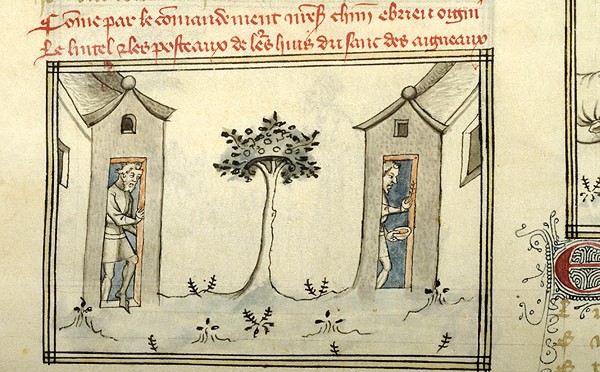 Cõme par le cõmandement nr̃ẽ chũ ebrieu oigni
Le lintel ⁊ les posteaux de lr̃s huis du sanc des aigneaux